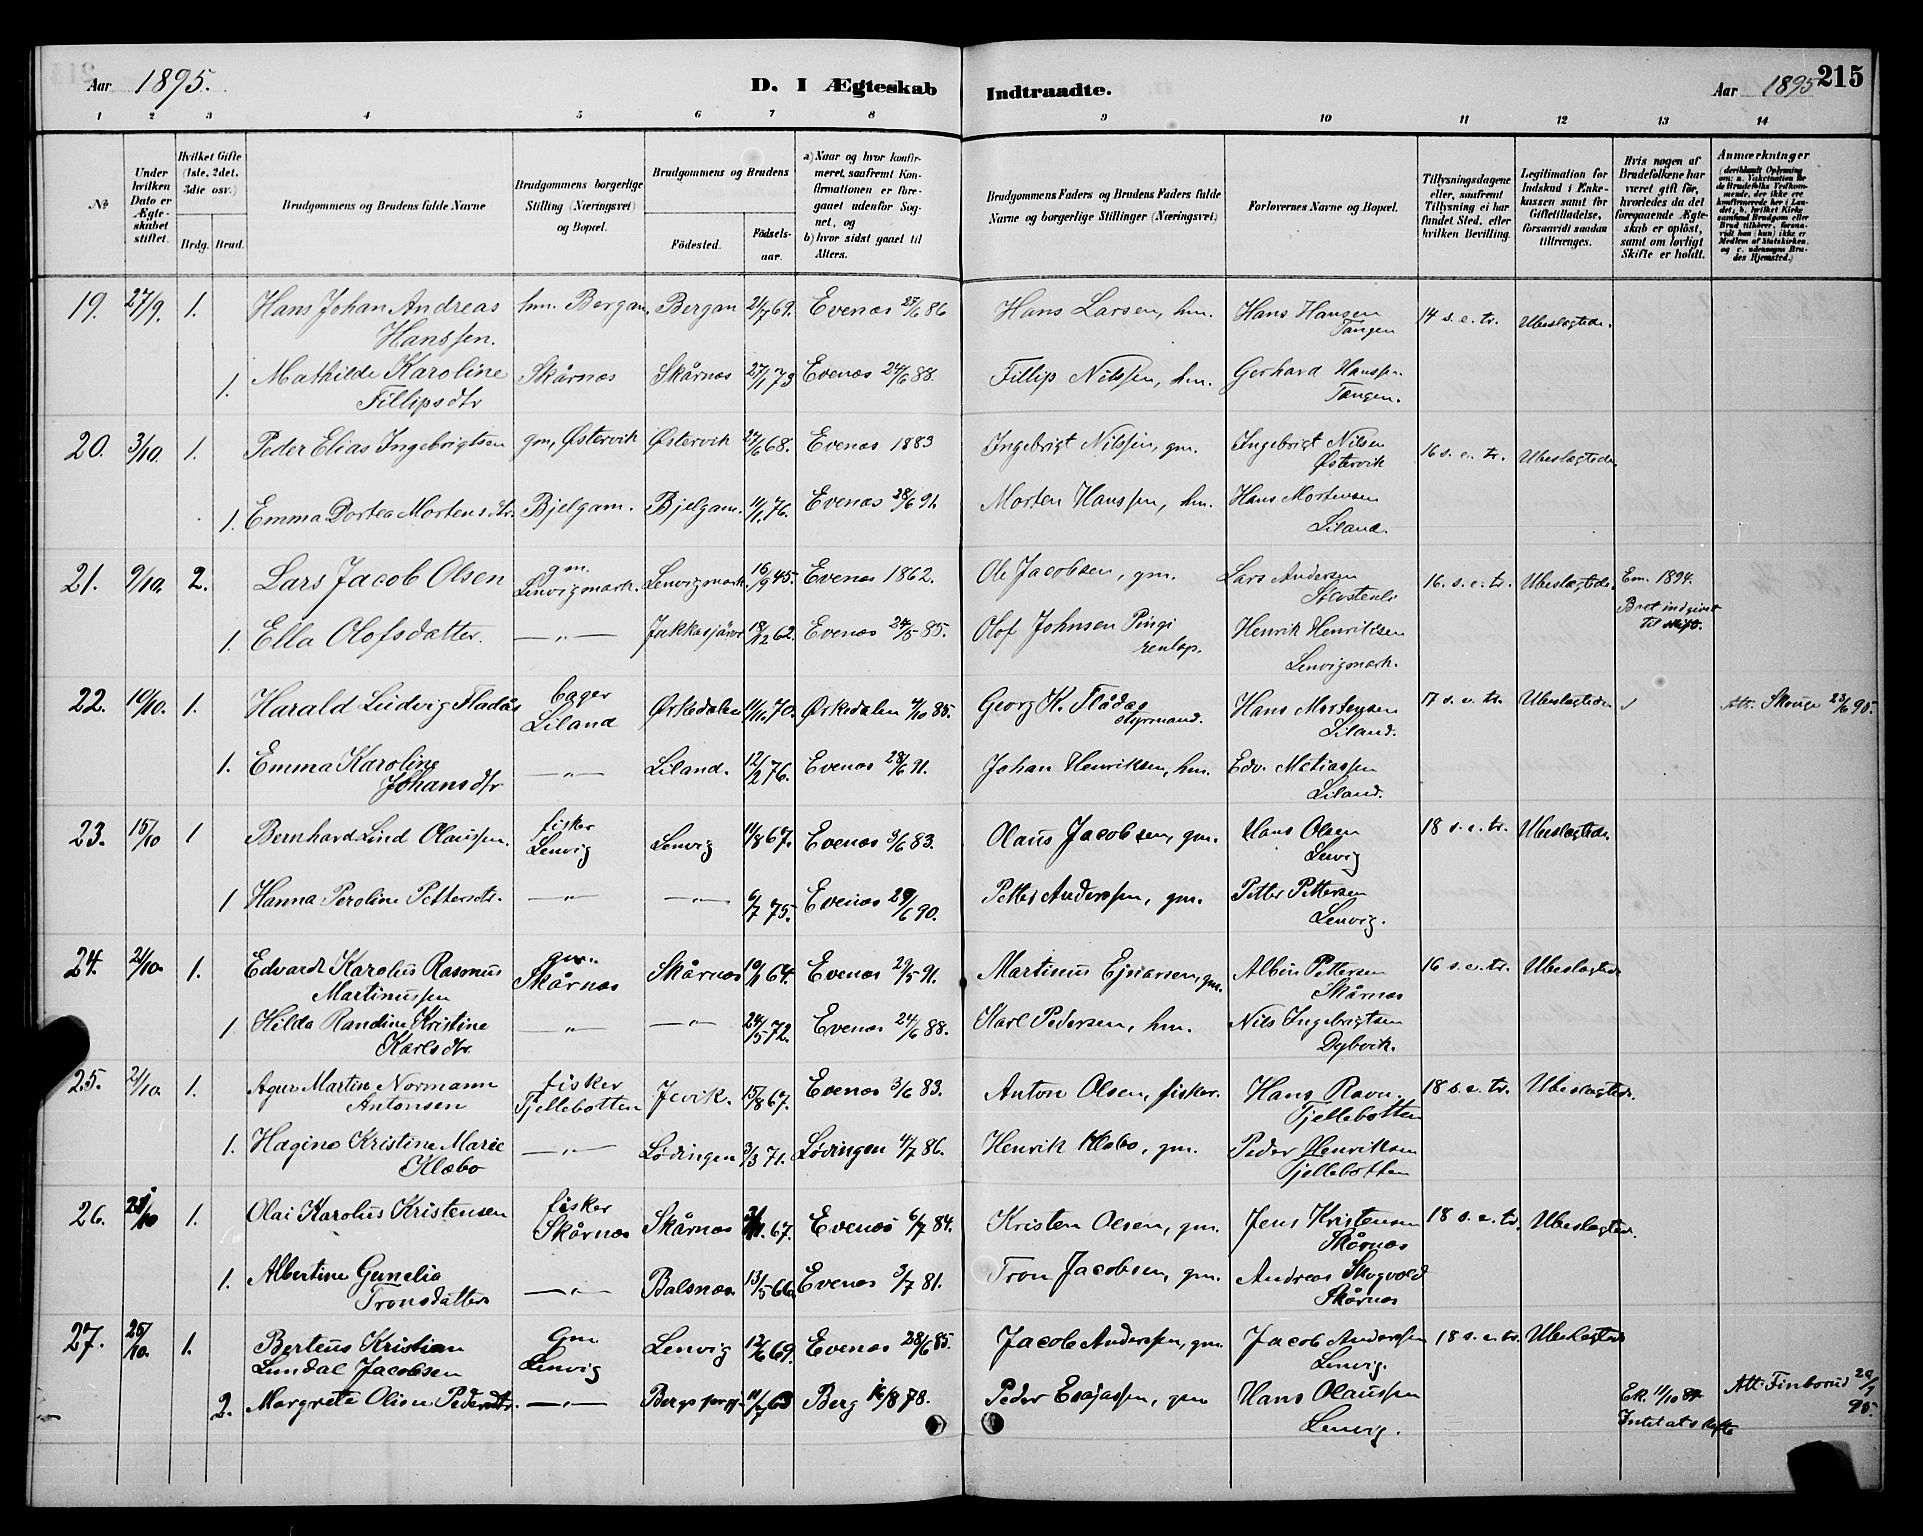 Aar 1895.
D. I Ægteskab
Indtraadte.
Aar 1895
215
1 2 3 4 5 6 7 8 9 10 11 12 13 14
№
Under hvilken Dato er Ægteskabet stiftet.
Hvilket Gifte (1ste, 2det, 3die osv.)
Brdg. Brud.
Brudgommens og Brudens fulde Navne
Brudgommens borgerlige Stilling (Næringsvei) og Bopæl.
Brudgommens og Brudens
Födested.
Födsels-aar.
a) Naar og hvor konfirmeret, saafremt Konfirmationen er foregaaet udenfor Sognet, og
b) hvor sidst gaaet til Alters.
Brudgommens Faders og Brudens Faders fulde Navne og borgerlige Stillinger (Næringsvei)
Forlovernes Navne og Bopæl.
Tillysningsdagene eller, saafremt Tillysning ei har fundet Sted, efter hvilken Bevilling.
Legitimation for Indskud i Enkekassen samt for Giftetilladelse, forsaavidt saadan tiltrænges.
Hvis nogen af Brudefolkene har været gift för, hvorledes da det foregaaende Ægteskab er oplöst, samt om lovligt Skifte er holdt.
Anmærkninger
19. 27/9. 1. Hans Johan Andreas Hanssen. hm. Bergan. Bergan 21/7 69. Evenæs 27/6 86 Hans Larsen, hm. Hans Hansen Tangen 14 s. e. tr. Ubeslægtede.
1. Mathilde Karoline Fillipsdtr Skårnæs Skårnæs 27/1 73 Evenæs 24/6 88. Fillip Nilssen, hm. Gerhard Hanssen Tangen.
20. 3/10. 1. Peder Elias Ingebrigtsen gm, Østervik Østervik 27/6 68. Evenæs 1883 Ingebrigt Nilssen, gm. Ingebrigt Nilsen Østervik 16 s. e. tr. Ubeslægtede.
1. Emma Dortea Mortensdtr. Bjelgam. Bjelgam. 11/1 76. Evenæs 28/6 91. Morten Hanssen, hm. Hans Mortensen Liland.
21. 9/10. 2. Lars Jacob Olsen gm. Lenvigmark. Lenvigmark. 16/9 45. Evenæs 1862. Ole Jacobsen, gm. Lars Andersen 16. s. e. tr. Ubeslægtede. Em. 1894. Bret indgivet til skift.
1. Ella Olofsdatter. —„— Jukkasjärvi 18/12 62. Evenæs 24/5 85. Olof Johnsen Pingi renlap. Henrik Henriksen Lenvigmark.
22. 10/10. 1. Harald Ludvig Fladås bager Liland Ørkedalen 11/11 70. Ørkedalen 4/10 85. Georg K. Flådas styrmand. Hans Mortensen Liland. 17 s. e. tr. Ubeslægtede. Att. Skouge 23/6 95.
1. Emma Karoline Johansdtr —„— Liland. 12/2 76. Evenæs 28/6 91. Johan Henriksen, hm. Edv. Matiassen Liland.
23. 15/10 1 Bernhard Lind Olaussen. fisker Lenvig Lenvig 11/8 67. Evenæs 3/6 83. Olaus Jacobsen, gm. Hans Olsen Lenvig 18 s. e. tr. Ubeslægtede.
1 Hanna Peroline Pettersdtr. —„— —„— 6/7 75. Evenæs 29/6 90. Petter Anderssen, gm. Petter Pettersen Lenvig.
24. 21/10. 1. Edvardt Karolus Rasmus Martinussen gm. Skårnæs Skårnæs 10/11 64. Evenæs 29/5 91. Martinus Ejnarsen, gm. Albin Pettersen Skårnæs 16 s. e. tr. Ubeslægtede
1 Hilda Randine Kristine Karlsdtr —„— —„— 24/5 72. Evenæs 24/6 88. Karl Pedersen, hm. Nils Ingebrigtsen Dybvik.
25. 21/10. 1. Agur Martin Normann Antonsen fisker Tjellebotten Jevik. 15/8 67. Evenæs 3/6 83. Anton Olsen, fisker. Hans Ravn. Tjellebotten 18 s. e. tr. Ubeslægtede.
1. Hagine Kristine Marie Klæbo —„— Lødingen 3/3 71. Lødingen 4/7 86. Henrik Klæbo, gm. Peder Henriksen Tjellebotten
26. 21/10 1. Olai Karolus Kristensen fisker Skårnæs Skårnæs 67. Evenæs 6/7 84. Kristen Olsen, gm. Jens Kristensen Skårnæs 18 s. e. tr. Ubeslægtede.
1. Albertine Gunelia Tronsdatter —„— Balsnæs. 13/5 66. Evenæs 3/7 81. Tron Jacobsen, gm. Andreas Skogvold Skårnæs
27. 25/10. 1. Berteus Kristian Lundal Jacobsen Gm Lenvig Lenvig 12/6 69. Evenæs 28/6 85. Jacob Anderssen, gm. Jacob Anderssen Lenvig. 18 s. e. tr. Ubeslægtede
2. Margrete Olsen Pedersdtr. —„— Berg 11/7 63 Berg 8 78. Peder Esajassen, gm Hans Olaussen Lenvig. Ek. 11/10 Intet at skifte Att. Finborud 20/7 95.